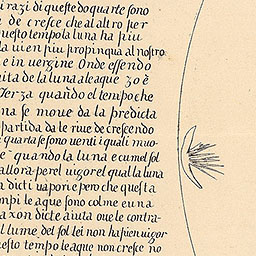 i razi di queste do quarte sono
de cresce che al altro per
questo tempo la luna ha piu
la uien piu propinqua al nostro
e in uergine Onde essendo
uita de la luna aleaque 30 è
Terza quando el tempo che
na se moue da la predicta
partida da le riue de crescendo
quarta se sono uenti i quali muo-
quando la luna e cum el sol
allora per el uigor el qual la luna
dicti uapori e pero che questa
mpi le aque sono colme e una
axon dicte aiuta oue le contra-
l lume del sol lei non ha pien uigor
esto tempo le aque non cresce no